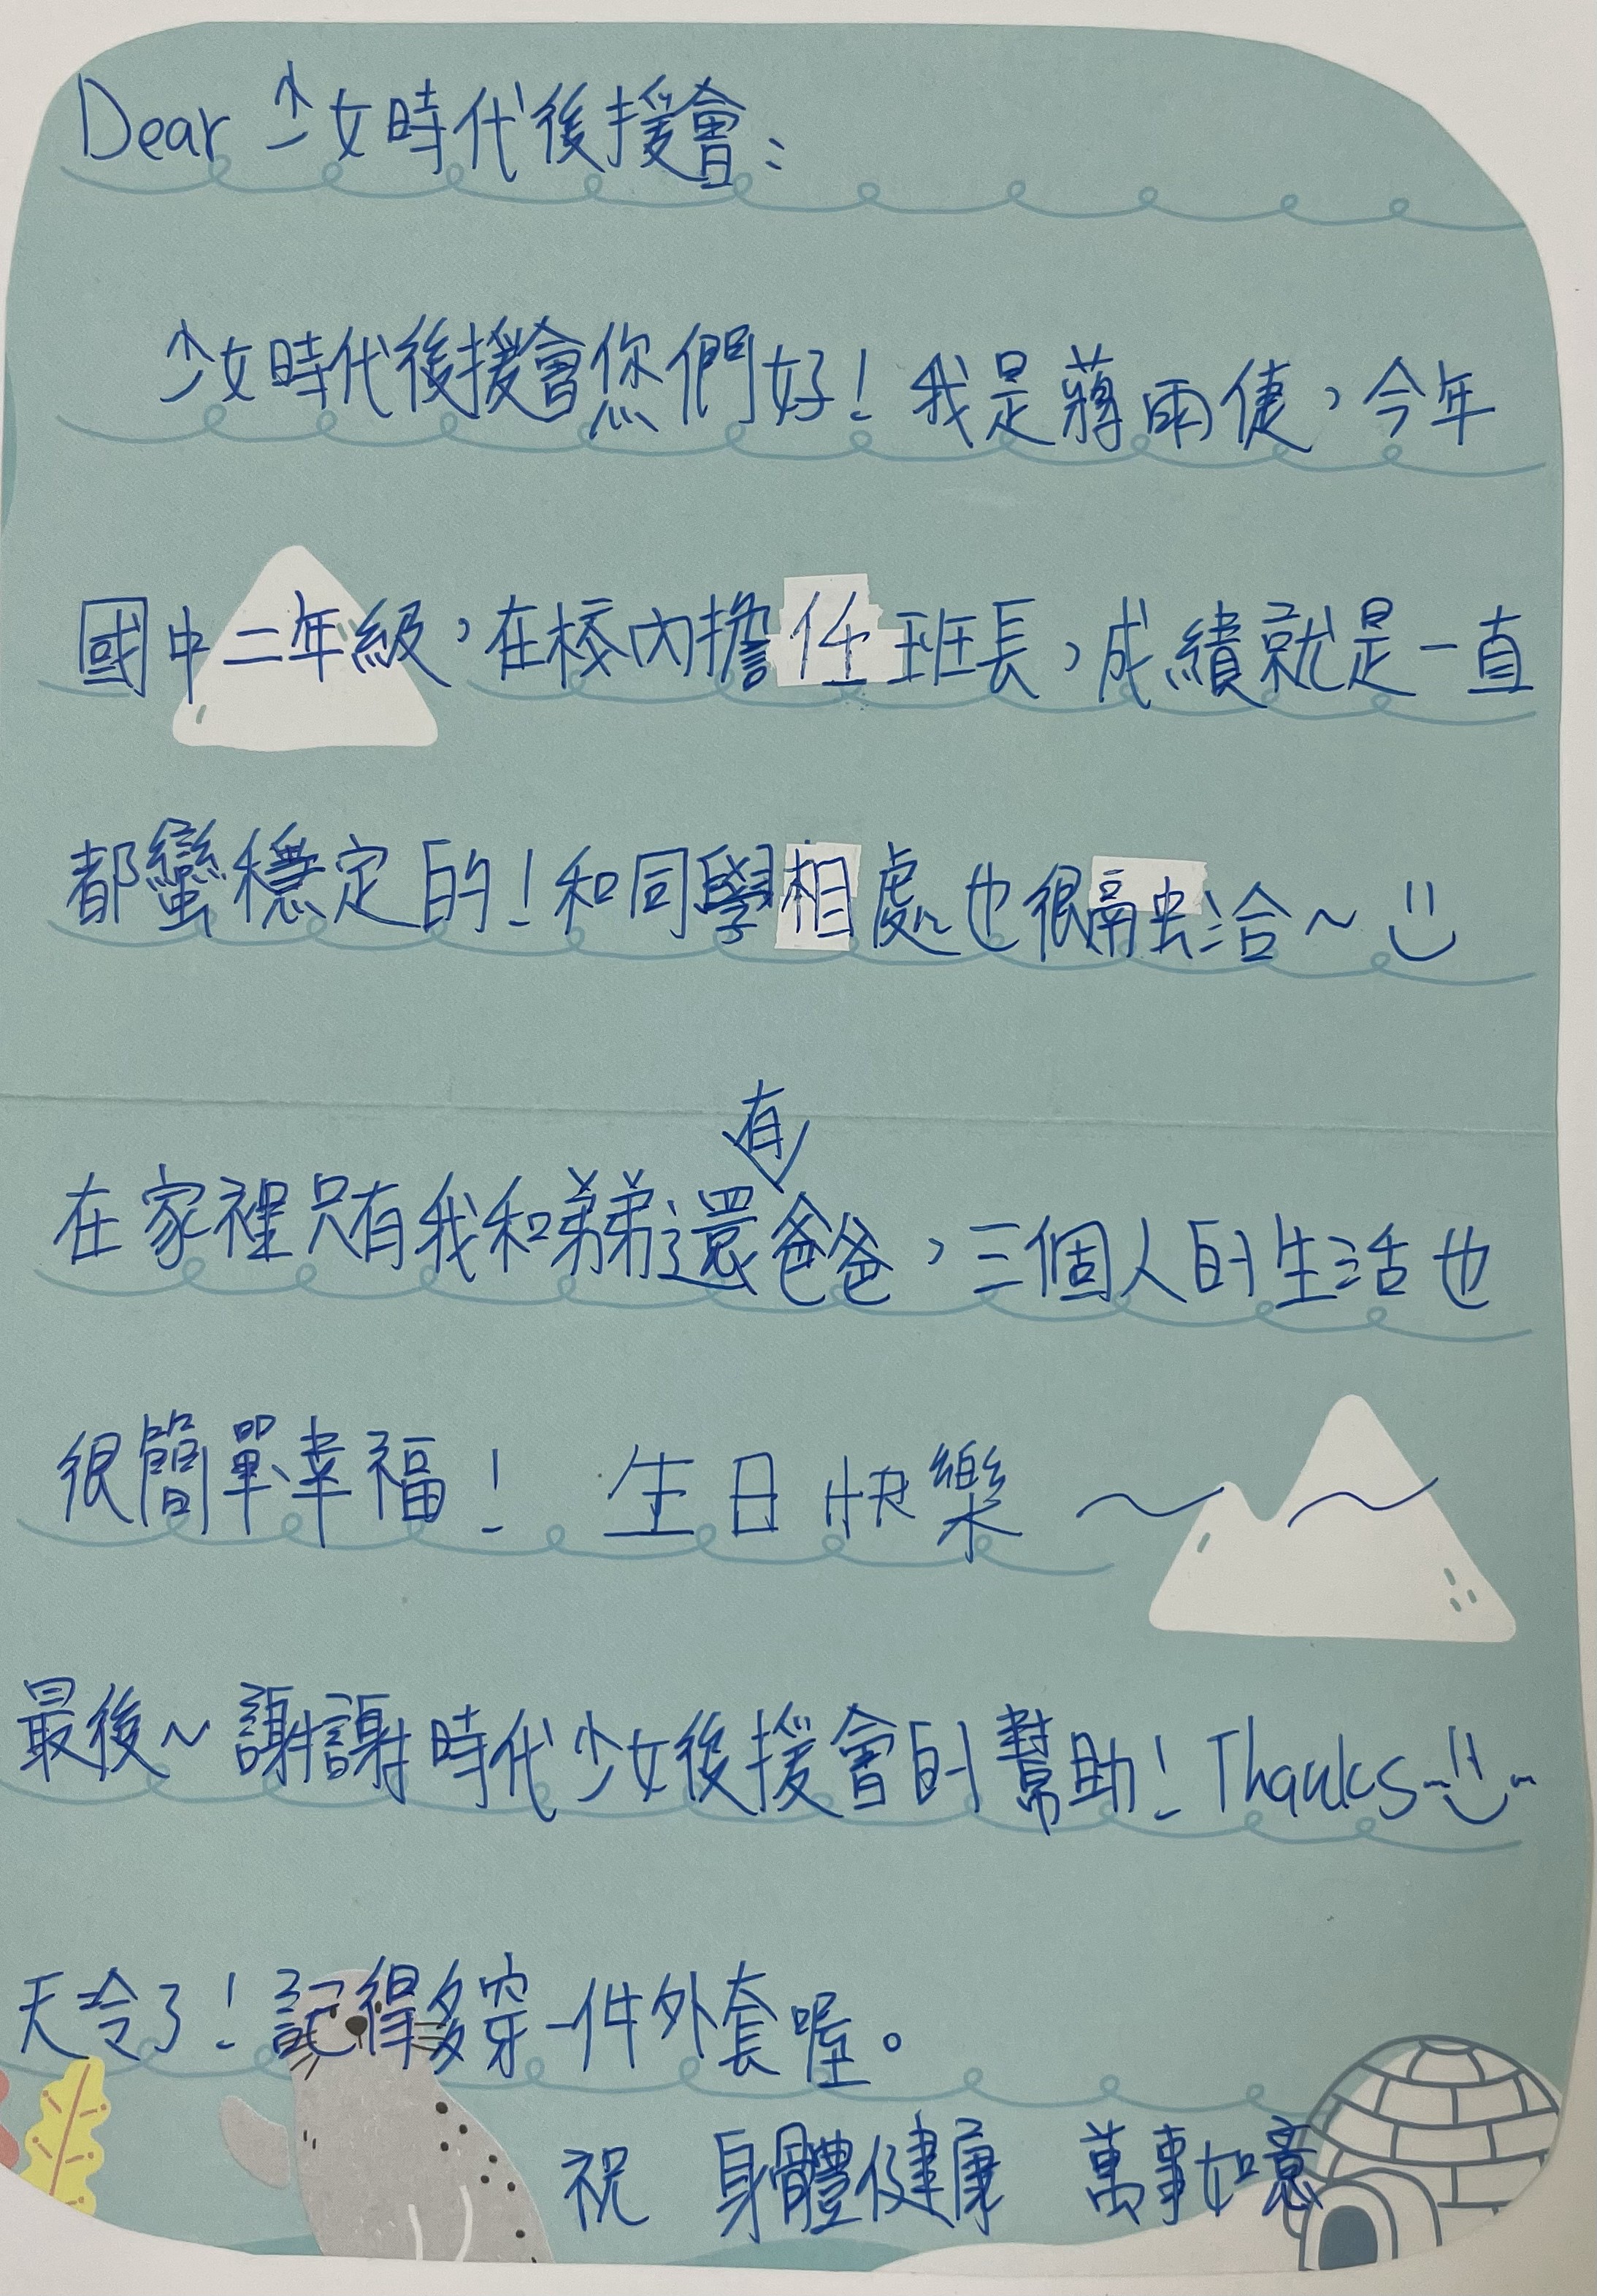 Dear 少女時代後援會:
少女時代後援會您們好!我是蔣雨倢,今年
國中二年級,在校內擔任班長,成績就是一直
都蠻穩定的!和同學相處也很融洽~
在家裡只有我和弟弟還有爸爸,三個人的生活也
很簡單幸福! 生日快樂~~
最後~謝謝時代少女後援會的幫助!Thanks~
天冷了!記得多穿一件外套喔。
祝 身體健康 萬事如意